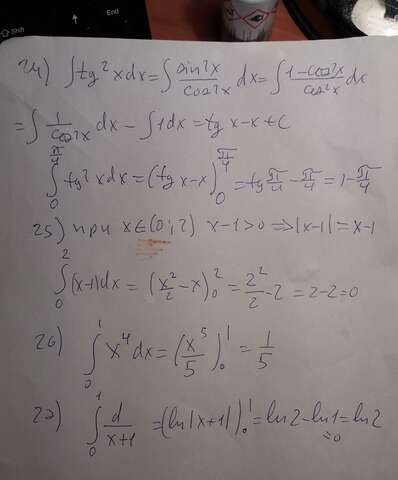 Shift
Ctrl
End
24) ∫tg²xdx=∫sin²x/cos²x dx=∫(1-cos²x)/cos²x dx
=∫1/cos²x dx-∫1dx=tg x-x+C
∫₀^(π/4) tg²xdx=(tg x-x)₀^(π/4)=tg π/4-π/4=1-π/4
25) при x∈(0;2) x-1>0 =>|x-1|=x-1
∫₀² (x-1)dx=(x²/2-x)₀²=2²/2-2=2-2=0
26) ∫₀¹ x⁴dx=(x⁵/5)₀¹=1/5
27) ∫₀¹ d/(x+1) =(ln|x+1|)₀¹=ln2-ln1=ln2
=0